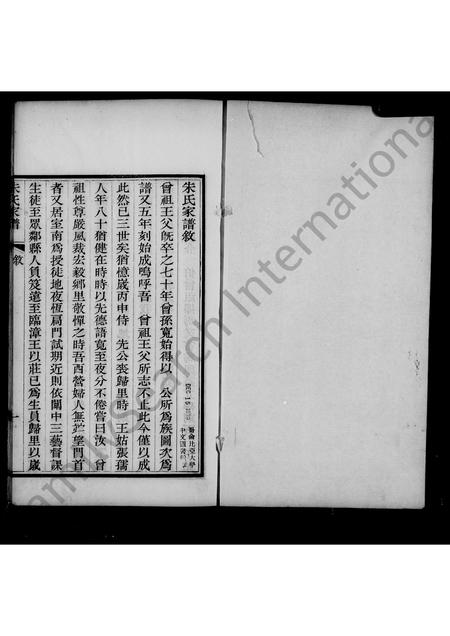 朱氏家譜敘
曾祖王父既卒之七十年曾孫寬始得以 公所為族圖次為
譜又五年刻始成嗚呼吾 曾祖王父所志不止此今僅以成
此然已三世矣猶憶歲丙申侍 先公喪歸里時 王姑張孺
人年八十猶健在時時以先德語寬至夜分不倦嘗曰汝 曾
祖性尊嚴風裁宏毅鄉里敬憚之時吾西營婦人無 門首
者又居室南為授徒地夜恆扃門試 近則依闈中三藝督課
生徒至眾鄰縣人負笈遠至臨漳王以莊已為生員歸里以歲
朱氏家譜
敘
一
DEC 15
哥倫比亞大學
中文圖書
Family Search International